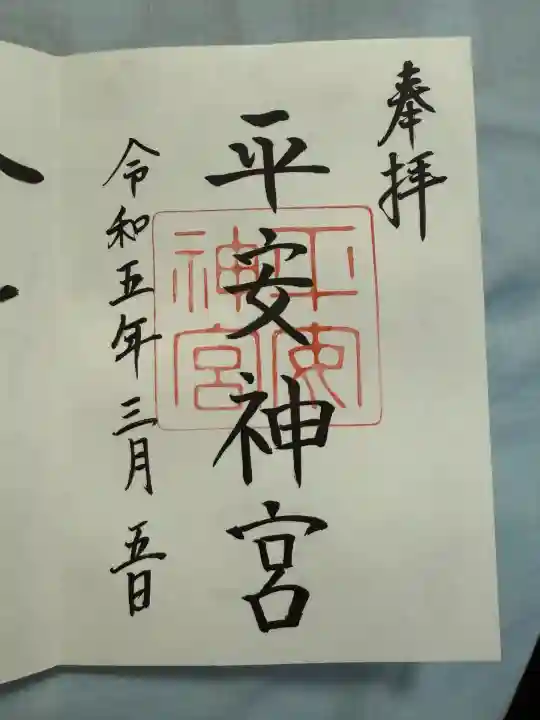 奉拝
平安神宮
平安
神宮
令和五年三月五日